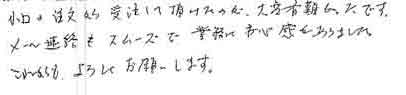 小口の注文から受注して頂けたのが、大変有難かったです。
メール連絡もスムーズで業務に安心感がありました。
これからも、よろしくお願いします。